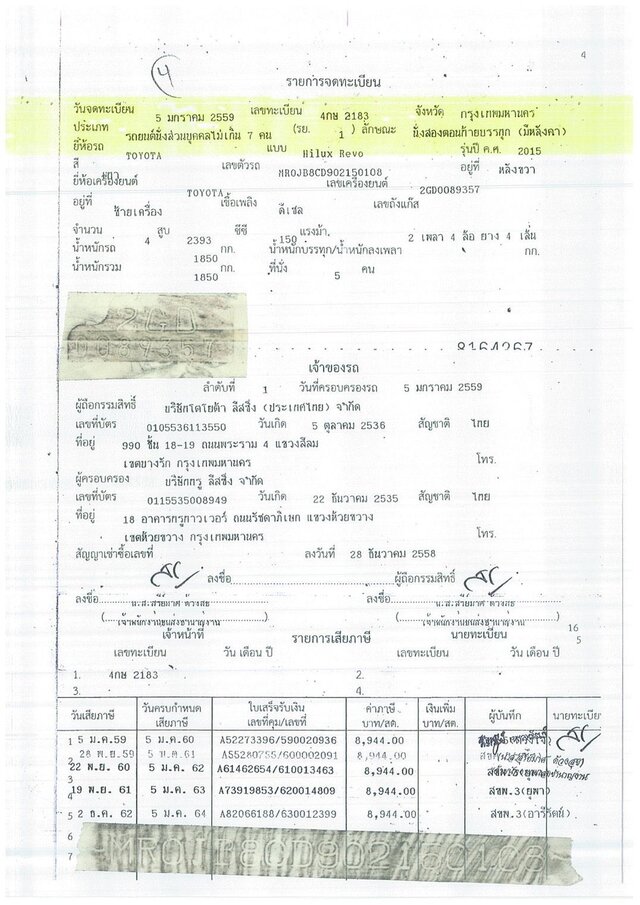 4
4
รายการจดทะเบียน
วันจดทะเบียน 5 มกราคม 2559 เลขทะเบียน 4กษ 2183 จังหวัด กรุงเทพมหานคร
ประเภท รถยนต์นั่งส่วนบุคคลไม่เกิน 7 คน (รย. 1 ) ลักษณะ นั่งสองตอนท้ายบรรทุก (มีหลังคา)
ยี่ห้อรถ TOYOTA แบบ Hilux Revo รุ่นปี ค.ศ. 2015
สี เลขตัวรถ MR0JB8CD902150108 อยู่ที่ หลังขวา
ยี่ห้อเครื่องยนต์ TOYOTA เลขเครื่องยนต์ 2GD0089357
อยู่ที่ ซ้ายเครื่อง เชื้อเพลิง ดีเซล เลขถังแก๊ส
จำนวน 4 สูบ 2393 ซีซี 150 แรงม้า 2 เพลา 4 ล้อ ยาง 4 เส้น
น้ำหนักรถ 1850 กก. น้ำหนักบรรทุก/น้ำหนักลงเพลา กก.
น้ำหนักรวม 1850 กก. ที่นั่ง 5 คน
2GD
0089357
8164267
เจ้าของรถ
ลำดับที่ 1 วันที่ครอบครองรถ 5 มกราคม 2559
ผู้ถือกรรมสิทธิ์ บริษัทโตโยต้า ลีสซิ่ง (ประเทศไทย) จำกัด
เลขที่บัตร 0105536113550 วันเกิด 5 ตุลาคม 2536 สัญชาติ ไทย
ที่อยู่ 990 ชั้น 18-19 ถนนพระราม 4 แขวงสีลม
เขตบางรัก กรุงเทพมหานคร โทร.
ผู้ครอบครอง บริษัทกรู ลีสซิ่ง จำกัด
เลขที่บัตร 0115535008949 วันเกิด 22 ธันวาคม 2535 สัญชาติ ไทย
ที่อยู่ 18 อาคารทรูทาวเวอร์ ถนนรัชดาภิเษก แขวงห้วยขวาง
เขตห้วยขวาง กรุงเทพมหานคร โทร.
สัญญาเช่าซื้อเลขที่ ลงวันที่ 28 ธันวาคม 2558
ลงชื่อ ผู้ถือกรรมสิทธิ์
ลงชื่อ ลงชื่อ
เจ้าหน้าที่ รายการเสียภาษี นายทะเบียน
16
5
เลขทะเบียน วัน เดือน ปี เลขทะเบียน วัน เดือน ปี
1. 4กษ 2183 2.
3. 4.
วันเสียภาษี วันครบกำหนดเสียภาษี ใบเสร็จรับเงิน เล่มที่คุม/เลขที่ ค่าภาษี บาท/สต. เงินเพิ่ม บาท/สต. ผู้บันทึก นายทะเบียน
1 5 ม.ค.59 5 ม.ค.60 A52273396/590020936 8,944.00
2 28 พ.ย.59 5 ม.ค.61 8,944.00
3 22 พ.ย. 60 5 ม.ค. 62 A61462654/610013463 8,944.00
4 19 พ.ย. 61 5 ม.ค. 63 A73919853/620014809 8,944.00 สขพ.3(ยุพา)
5 2 ธ.ค. 62 5 ม.ค. 64 A82066188/630012399 8,944.00 สขพ.3(อารีรัตน์)
6
7